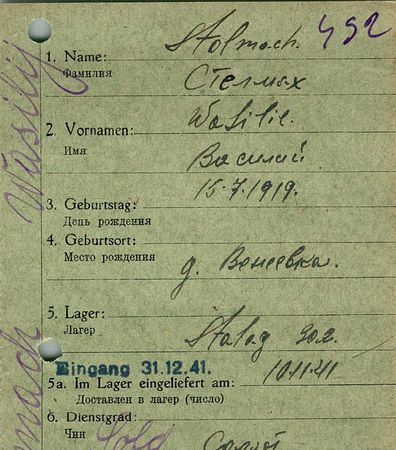 Stolmach. 492
1. Name:
Фамилия
Стелмах
Wasilie.
2. Vornamen:
Имя
Василий
15.7.1919.
3. Geburtstag:
День рождения
4. Geburtsort:
Место рождения
д. Венеевка.
5. Lager:
Лагер
Stalag 302.
Eingang 31.12.41.
10.11.41
5a. Im Lager eingeliefert am:
Доставлен в лагер (число)
6. Dienstgrad:
Чин
Sold
Wasilij